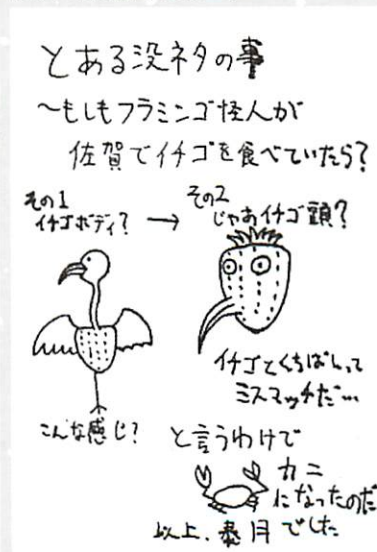 とある没ネタの事
～もしもフラミンゴ怪人が
佐賀でイチゴを食べていたら？
その1
イチゴボディ？
→
その2
じゃあイチゴ頭？
こんな感じ？
イチゴとくちばしって
ミスマッチだ…
と言うわけで
カニ
になったのだ
以上、泰月でした